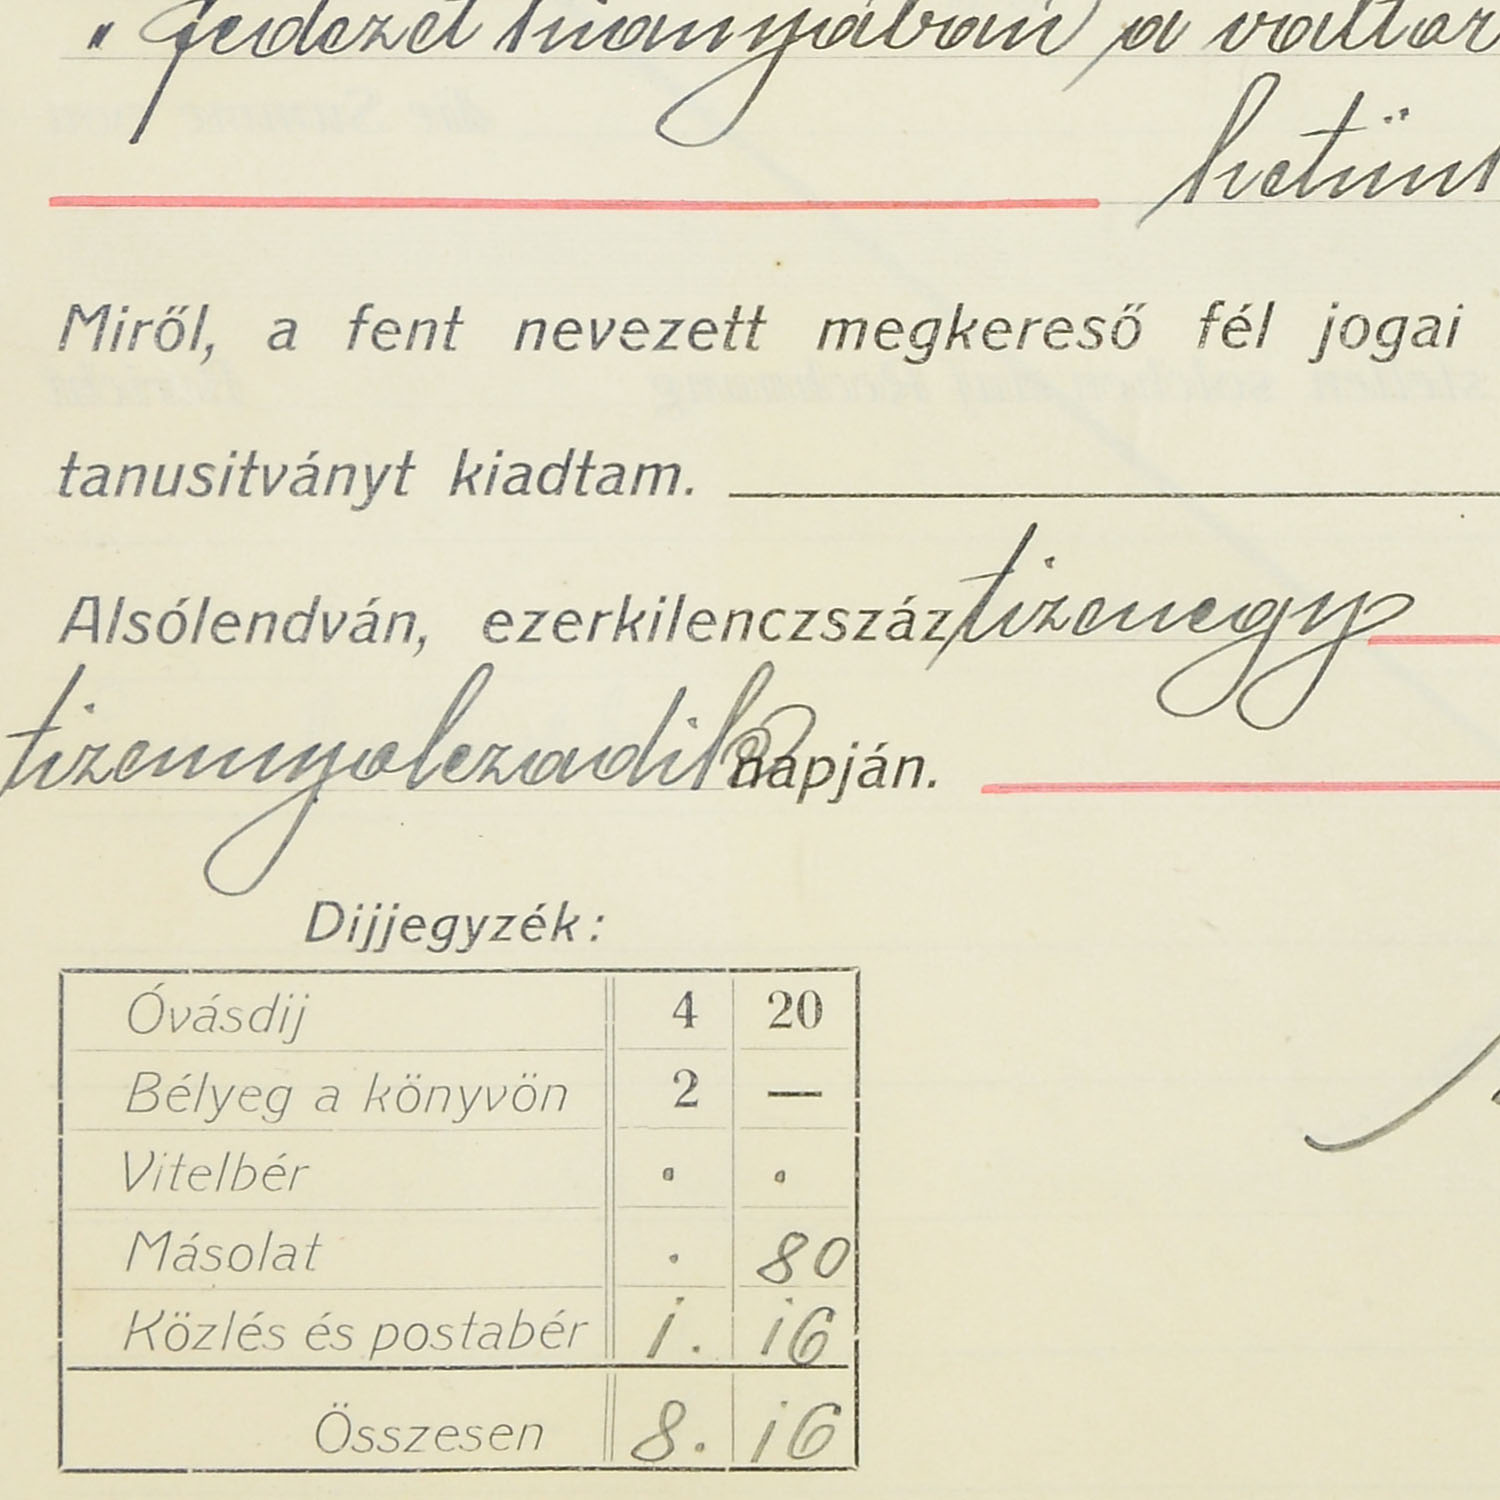 " fedezet hiányában a váltót
hetünk
Miről, a fent nevezett megkereső fél jogai
tanusitványt kiadtam.
Alsólendván, ezerkilenczszáz tizenegy
tizennyolczadik napján.
Dijjegyzék:
Óvásdij 4 20
Bélyeg a könyvön 2 —
Vitelbér . .
Másolat . 80
Közlés és postabér 1. 16
Összesen 8. 16